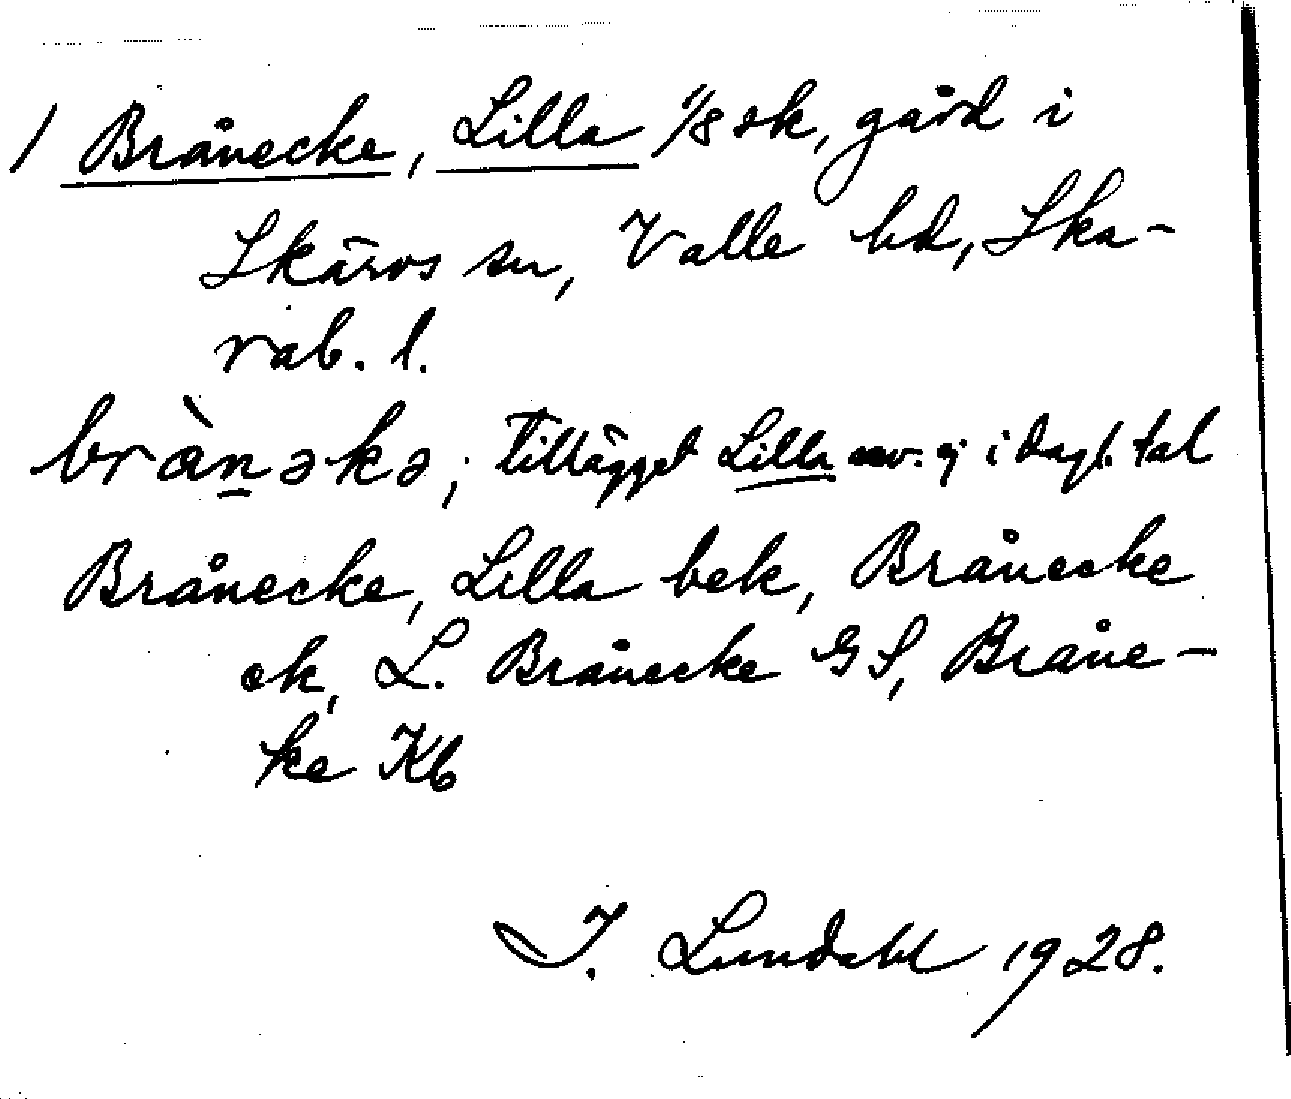 1 Brånecke, Lilla 1/8 sk, gård i
Skärvs sn, Valle hd, Ska-
rab. l.
brànəkə, tillägget Lilla anv. ej i dagl. tal
Brånecke, Lilla bek, Brånecke
ek, L. Brånecke GS, Bråne-
ke Kb
I. Lundahl 1928.